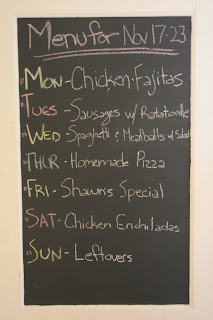 Menu for Nov 17-23
Mon - Chicken Fajitas
Tues - Sausages w/ Ratatouille
Wed - Spaghetti & Meatballs w/ Salad
Thur - Homemade Pizza
Fri - Shawn's Special
Sat - Chicken Enchiladas
Sun - Leftovers